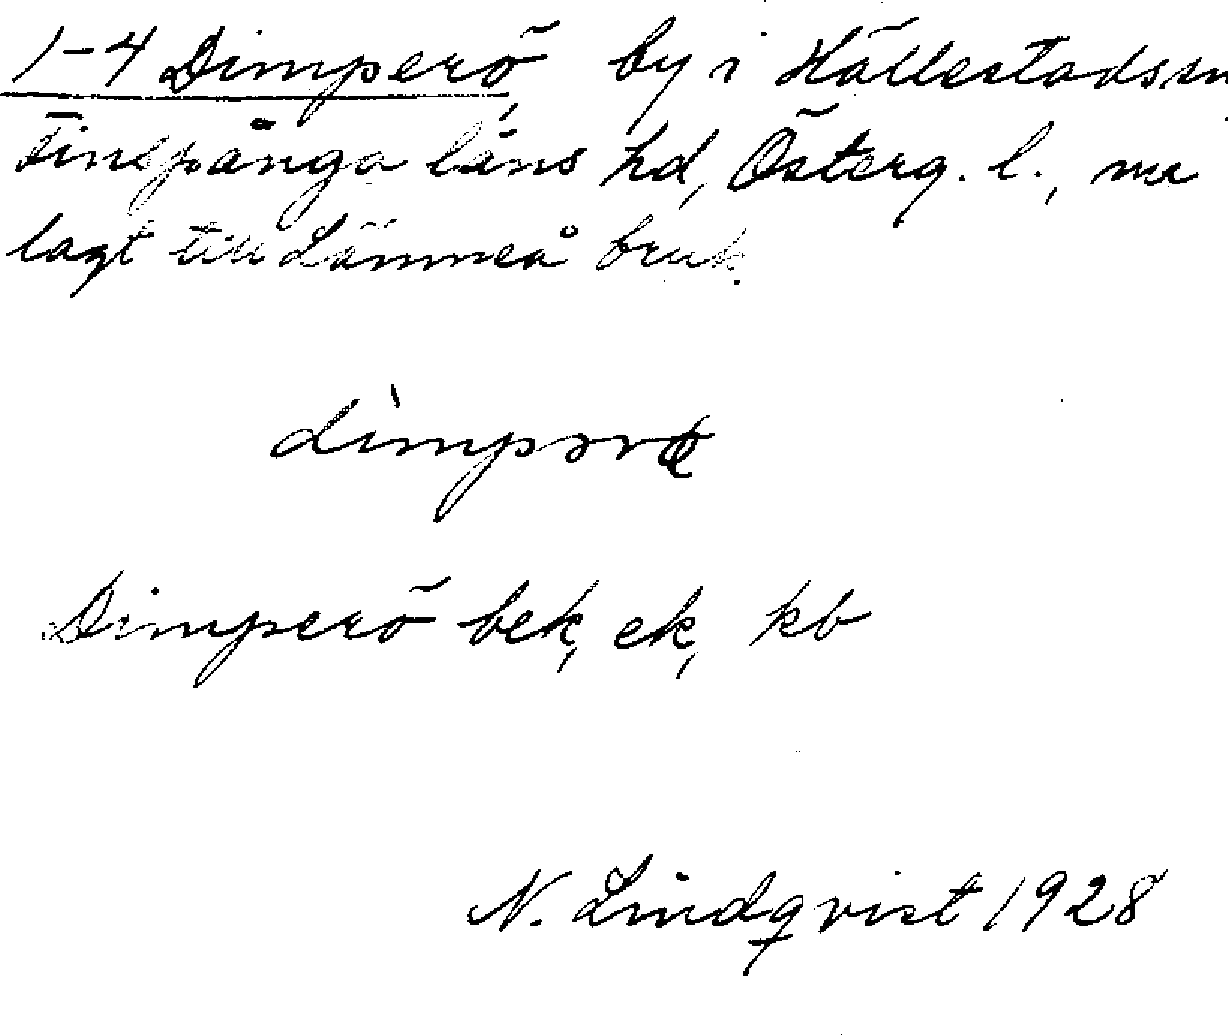 1-4 Dimperö, by i Hällestads sn
Finspånga läns hd, Österg. l., nu
lagt till Lämneå bruk.
Dimperö bek, ek, kb
N. Lindqvist 1928